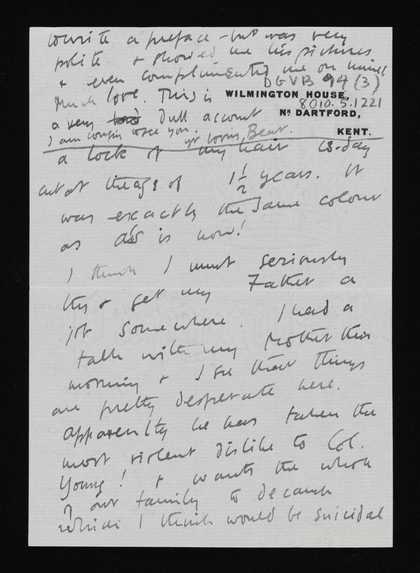 write a preface - but was very
polite & showed me his pictures
& even complimented me on mine!
Much love. This is
a very dull account
I am coming to see you. yr loving, Bear.
DGVB 94 (3)
WILMINGTON HOUSE,
8010.5.1221
Nr DARTFORD,
KENT.
a lock of my hair to-day
cut at the age of 1½ years. It
was exactly the same colour
as it is now!
I think I must seriously
try & get my Father a
job somewhere. I had a
talk with my Mother this
morning & I see that things
are pretty desperate here.
Apparently he has taken the
most violent dislike to Col.
Young! & wants the whole
of our family to decamp
which I think would be suicidal